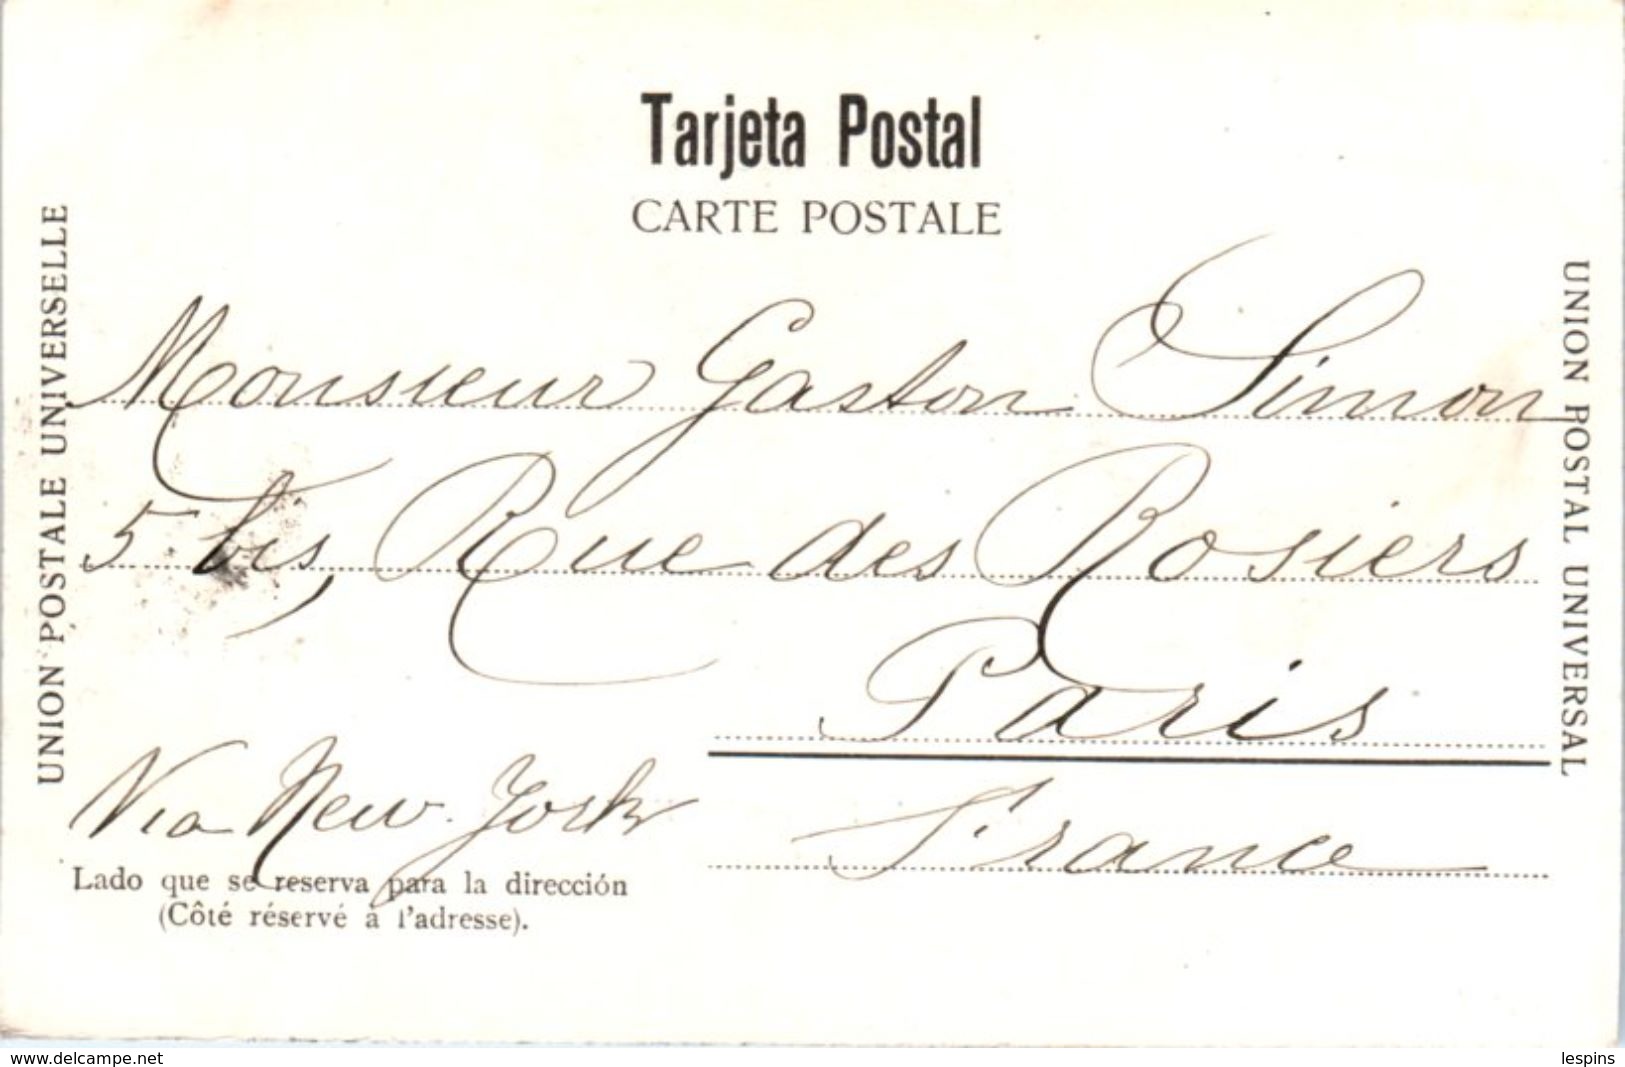 Tarjeta Postal
CARTE POSTALE
UNION POSTALE UNIVERSELLE
UNION POSTAL UNIVERSAL
Monsieur Gaston Simon
5 bis, Rue des Rosiers
Paris
Via New-York
France
Lado que se reserva para la dirección
(Côté réservé à l'adresse).
www.delcampe.net
lespins